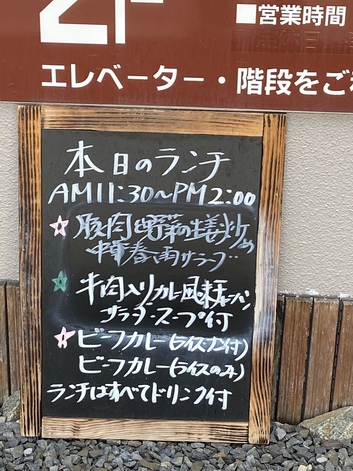 2F
■営業時間
エレベーター・階段をご
本日のランチ
AM11:30〜PM2:00
豚肉と野菜の生姜炒め
中華春雨サラダ
牛肉入りカレー風味
サラダ・スープ付
ビーフカレー(ライスナン付)
ビーフカレー(ライスのみ)
ランチはすべてドリンク付